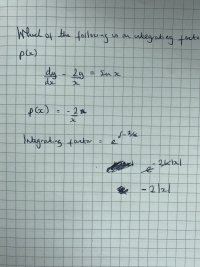 Which of the following is an integrating factor
p(x)
dy/dx - 2y/x = sin x
p(x) = -2/x
Integrating factor = e^∫-2/x
e^-2ln|x|
-2|x|